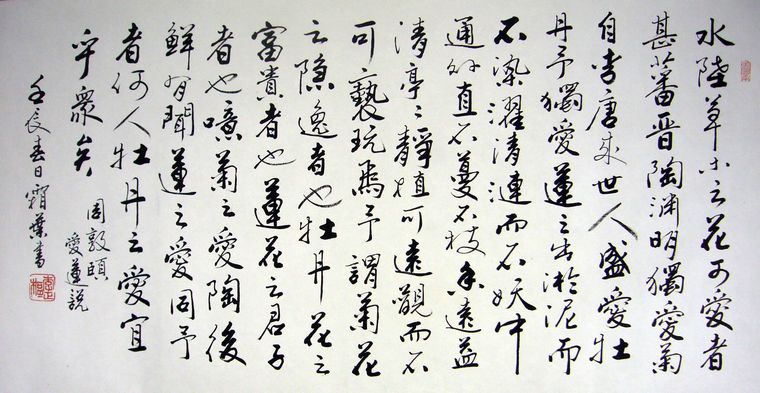 水陸草木之花可愛者
甚蕃晉陶渊明獨愛菊
自李唐來世人盛愛牡
丹予獨愛蓮之出淤泥而
不染濯清漣而不妖中
通外直不蔓不枝香遠益
清亭〻靜植可遠觀而不
可褻玩焉予謂菊花
之隐逸者也牡丹花之
富貴者也蓮花之君子
者也噫菊之愛陶後
鮮有聞蓮之愛同予
者何人牡丹之愛宜
乎衆矣
周敦頤
愛蓮説
壬辰春日霜葉書